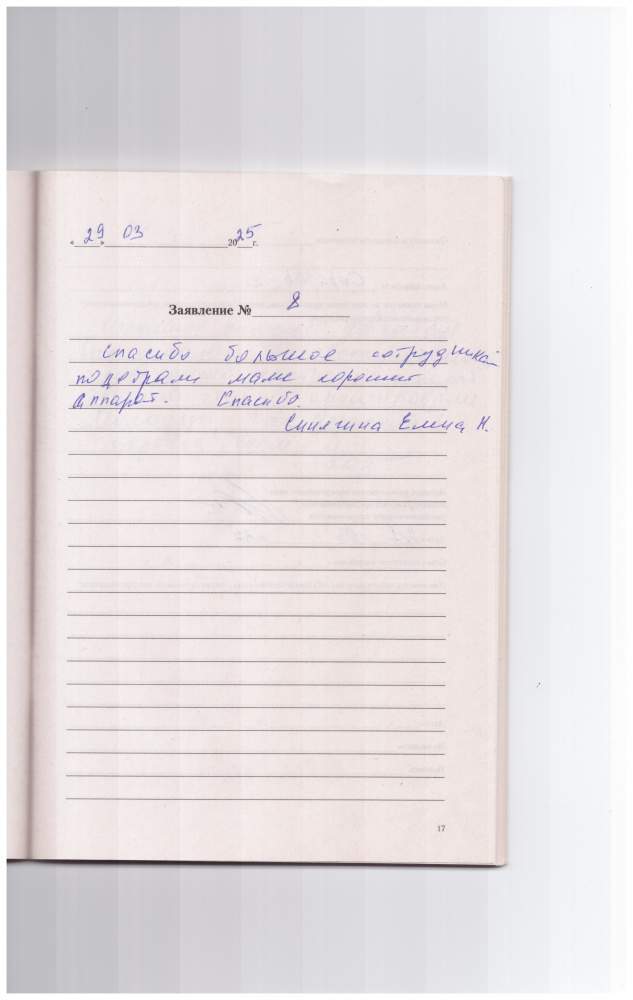 «29» 03 2025 г.
Заявление № 8
Спасибо большое сотрудникам
подобрали маме хороший
аппарат. Спасибо.
Елена Н.
17